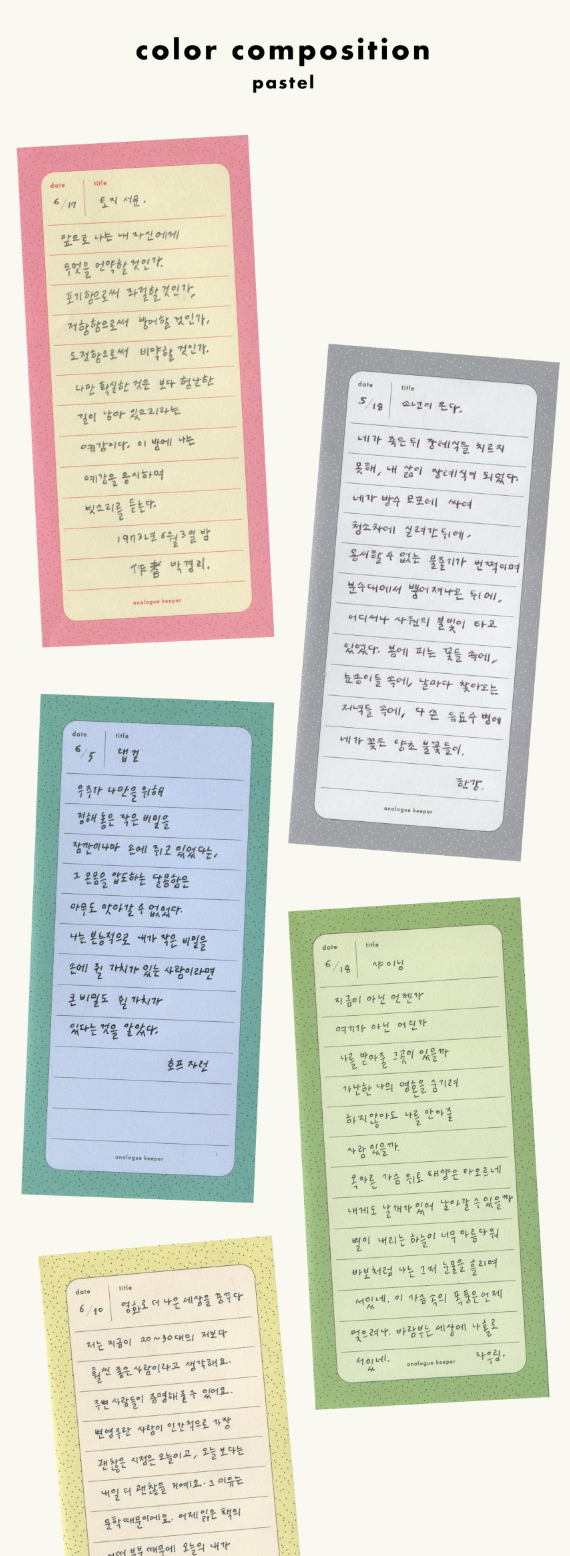 color composition
pastel
date
title
6/17
토지 서문.
앞으로 나는 내 자신에게
무엇을 언약할 것인가.
포기함으로써 좌절할 것인가,
저항함으로써 방어할 것인가,
도전함으로써 비약할 것인가.
나만 확실한 것은 보다 험난한
길이 남아 있으리라는
예감이다. 이 밤에 나는
예감을 응시하며
빗소리를 듣는다.
1973년 6월 3일 밤
作者 박경리.
analogue keeper
date
title
5/18
소년이 온다.
네가 죽은 뒤 장례식을 치르지
못해, 내 삶이 장례식이 되었다.
네가 방수 모포에 싸여
청소차에 실려간 뒤에.
용서할 수 없는 물줄기가 번쩍이며
분수대에서 뿜어져나온 뒤에.
어디서나 사원의 불빛이 타고
있었다. 봄에 피는 꽃들 속에,
눈송이들 속에, 날마다 찾아오는
저녁들 속에, 다 쓴 음료수 병에
네가 꽂은 양초 불꽃들이.
한강.
analogue keeper
date
title
6/5
댑
우주가 나만을 위해
정해 놓은 작은 비밀을
잠깐이나마 손에 쥐고 있었다는,
그 온몸을 압도하는 달콤함은
아무도 앗아갈 수 없었다.
나는 본능적으로 내가 작은 비밀을
손에 쥘 가치가 있는 사람이라면
큰 비밀도 쥘 가치가
있다는 것을 알았다.
호프 자런
analogue keeper
date
title
6/18
샤이닝
지금이 아닌 언젠가
여기가 아닌 어딘가
나를 받아줄 그곳이 있을까
가난한 나의 영혼을 숨기려
하지 않아도 나를 안아줄
사람 있을까.
목마른 가슴 위로 태양은 타오르네
내게도 날개가 있어 날아갈 수 있을까
별이 내리는 하늘이 너무 아름다워
바보처럼 나는 그저 눈물을 흘리며
서있네. 이 가슴속의 폭풍은 언제
멎으려나. 바람부는 세상에 나 홀로
서있네.
자우림.
analogue keeper
date
title
6/10
영화로 더 나은 세상을 꿈꾸다
저는 지금이 20~30대의 저보다
훨씬 좋은 사람이라고 생각해요.
주변 사람들이 증명해 줄 수 있어요.
변영주란 사람이 인간적으로 가장
괜찮은 시점은 오늘이고, 오늘보다는
내일 더 괜찮을 거예요. 그 이유는
문학 때문이에요. 어제 읽은 책의
어떤 부분 때문에 오늘의 내가